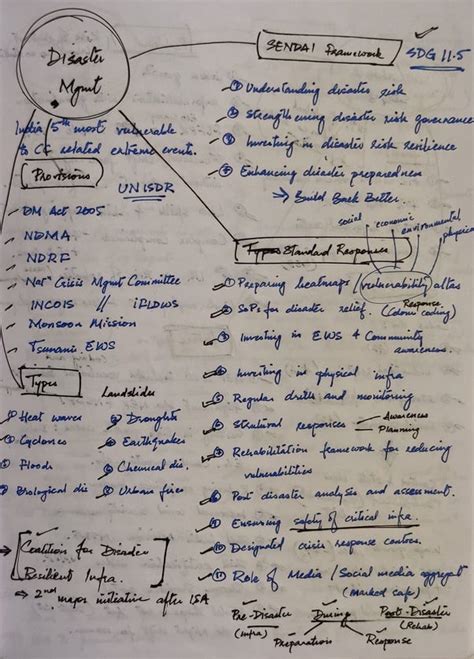 Disaster
Mgmt
SENDAI Framework
SDG 11.5
① Understanding disaster risk
② Strengthening disaster risk governance
③ Investing in disaster risk resilience
④ Enhancing disaster preparedness
→ Build Back Better.
India 5th most vulnerable
to CC related extreme event.
Provisions
UNISDR
- DM Act 2005
- NDMA
- NDRF
- Nat Crisis Mgmt Committee
- INCOIS // iFLOWS
- Monsoon Mission
- Tsunami EWS
social economic environmental physical
Types Standard Responses
① Preparing heatmaps / vulnerability atlas
② SoPs for disaster relief. Response (Colour coding)
③ Investing in EWS & Community
awareness
④ Investing in physical infra
⑤ Regular drills and monitoring
⑥ Structural responses - Awareness
- Planning
⑦ Rehabilitation framework for reducing
vulnerabilities
⑧ Post disaster analyses and assessment.
⑨ Ensuring safety of critical infra.
⑩ Designated crisis response centres.
⑪ Role of Media / Social media
(Marked safe)
Pre-Disaster During Post-Disaster
(Infra) (Rehab)
Preparation Response
Types
Landslides
① Heat waves
② Cyclones
③ Floods
④ Biological dis
⑤ Droughts
⑥ Earthquakes
⑦ Chemical dis.
⑧ Urban fires
→ Coalition for Disaster
Resilient Infra.
⇒ 2nd major initiative after ISA